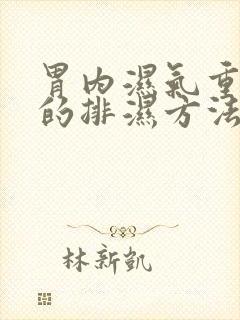 胃内湿氣重
的排濕方法
林新凯